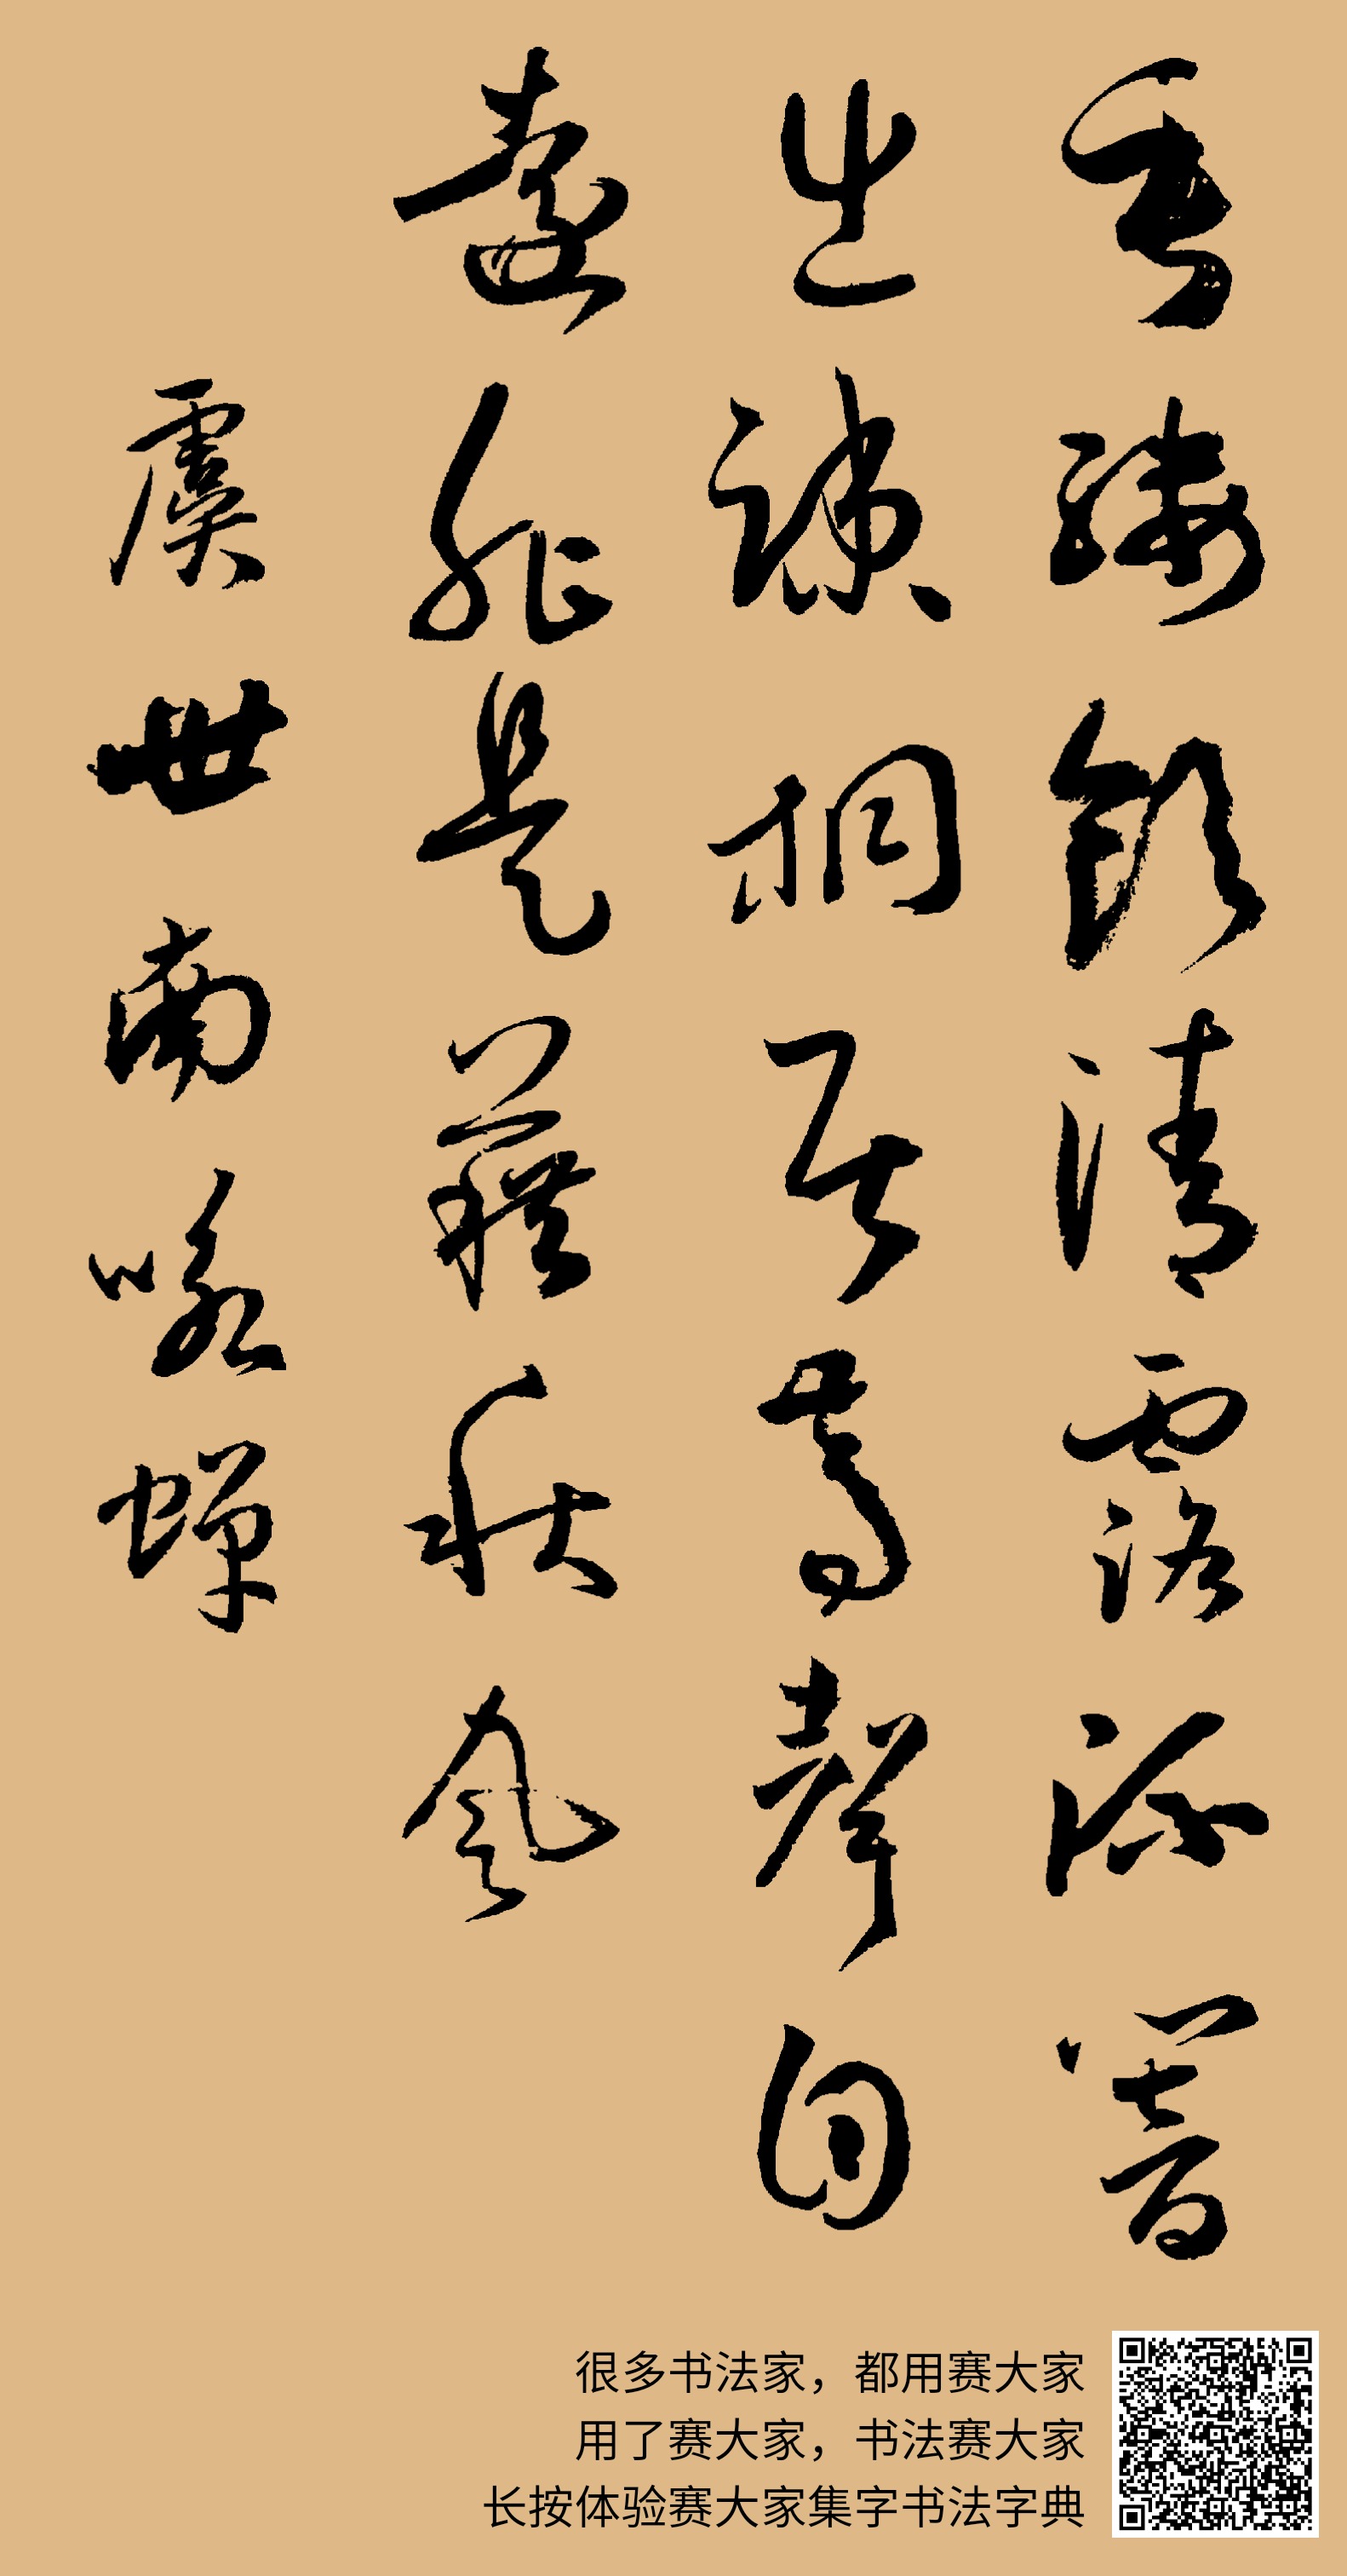 垂緌飲清露流響
出疎桐居高聲自
遠非是藉秋風
虞世南咏蟬
很多书法家，都用赛大家
用了赛大家，书法赛大家
长按体验赛大家集字书法字典